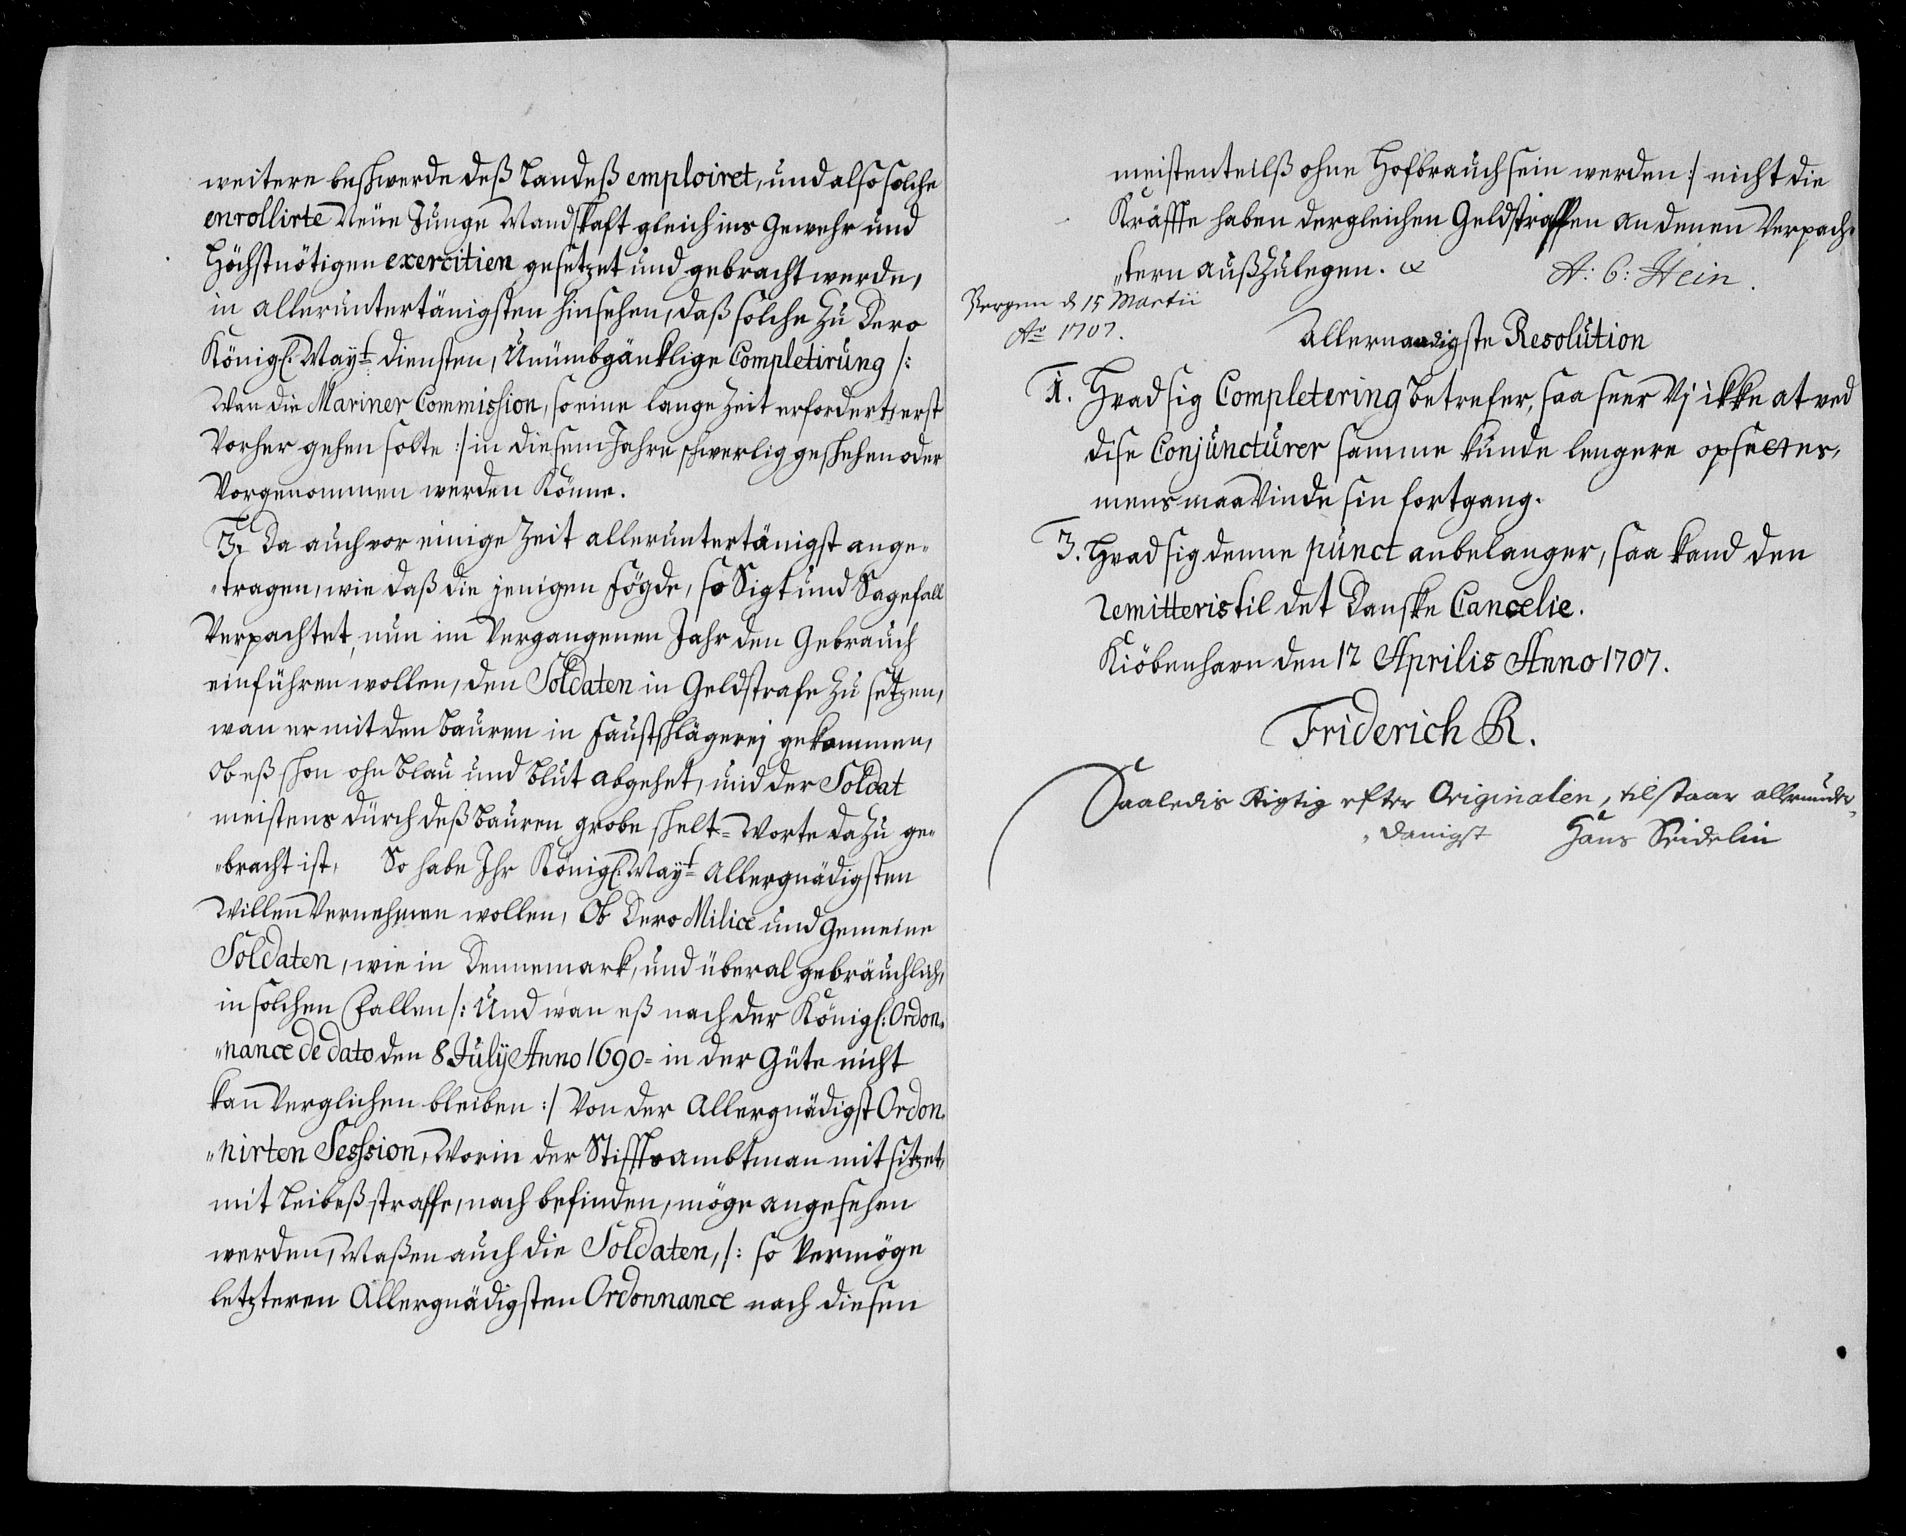 weitere beshwerde deß Landeß emploiret, und also solche
enrollirte Neüe Junge Mandskaft gleich ins Gewehr und
Höchstnötigen exercitien gesetzet und gebracht werde,
in alleruntertänigsten hinsehen, daß solche zu Dero
Königl. Mayt. diensten, Unümbgänklige Completirung /:
Wan die Mariner Commission, so eine lange Zeit erfordert, erst
Vorher gehen solte :/ in diesem Jahre schwerlig geshehen oder
Vorgenommen werden Könne.
3. Da auch vor einige Zeit alleruntertänigst ange„
„tragen, wie daß die jenigen fögde, so Sigt und Sagefall
Verpachtet, nun im Vergangenen Jahr den Gebrauch
einführen wollen, den Soldaten in Geldstrafe zu setzen,
wan er mit den Bauren in Faustshlägerej gekommen,
ob eß shon ohn Blau und Blut abgehet, und der Soldat
meistens durch deß Bauren grobe shelt= Worte dazu ge„
„bracht ist, So habe Ihr Königl. Mayt. Allergnädigsten
Willen Vernehmen wollen, Ob Dero Milice und Gemeine
Soldaten, wie in Dennemark, und überal gebräuchlich,
in solchen Fallen /: Und wan eß nach der Königl: Ordon„
„nance de dato den 8 Julij Anno 1690 = in der Güte nicht
kan Verglichen bleiben :/ Von der Allergnädigst Ordon„
„nirten Sesssion, Worin der Stifftsambtman mit sitzet,
mit Leibeßstraffe, nach befinden, möge angesehen
werden, Maßen auch die Soldaten, /: so Vermöge
letzteren Allergnädigsten Ordonnance nach diesen
meistenteilß ohne Hofbrauch sein werden :/ nicht die
Kräffte haben dergleichen Geldstraffen an denen Verpach„
„tern außzulegen.
A: C: Hein.
Bergen d 15 Martii
Ao 1707.
Allernaadigste Resolution
1. Hvad sig Completering betrefer, saa seer Vj ikke at ved
dise Conjuncturer samme kunde lengere opsettes,
mens maa Vinde sin fortgang.
3. Hvad sig denne punct anbelanger, saa kand den
remitteris til det Danske Cancelie.
Kiöbenhavn den 12 Aprilis Anno 1707.
Friderich R.
Saaledis Rigtig efter Originalen, tilstaar allerunder„
„danigst Hans Seidelin